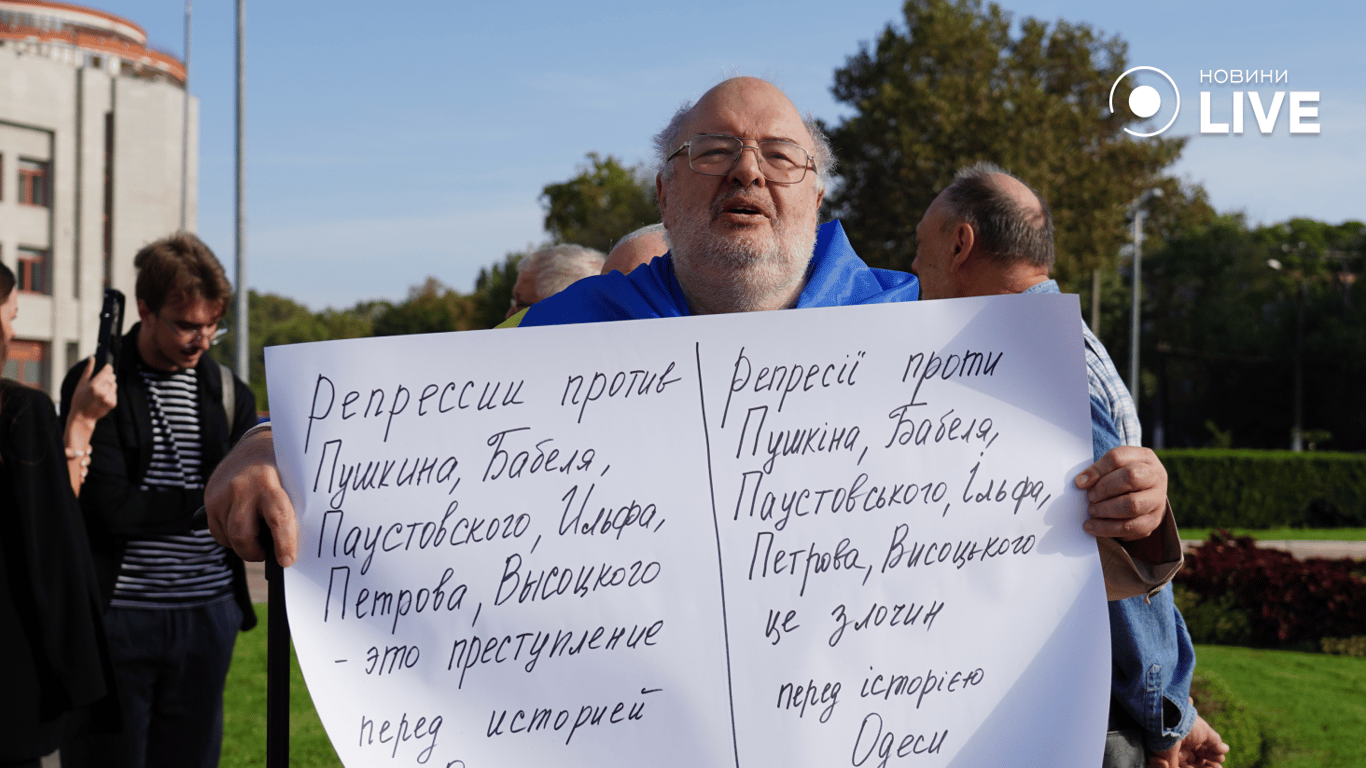 НОВИНИ
LIVE
Репрессии против
Пушкина, Бабеля,
Паустовского, Ильфа,
Петрова, Высоцкого
- это преступление
перед историей
Репресії проти
Пушкіна, Бабеля,
Паустовського, Ільфа,
Петрова, Висоцького
це злочин
перед історією
Одеси